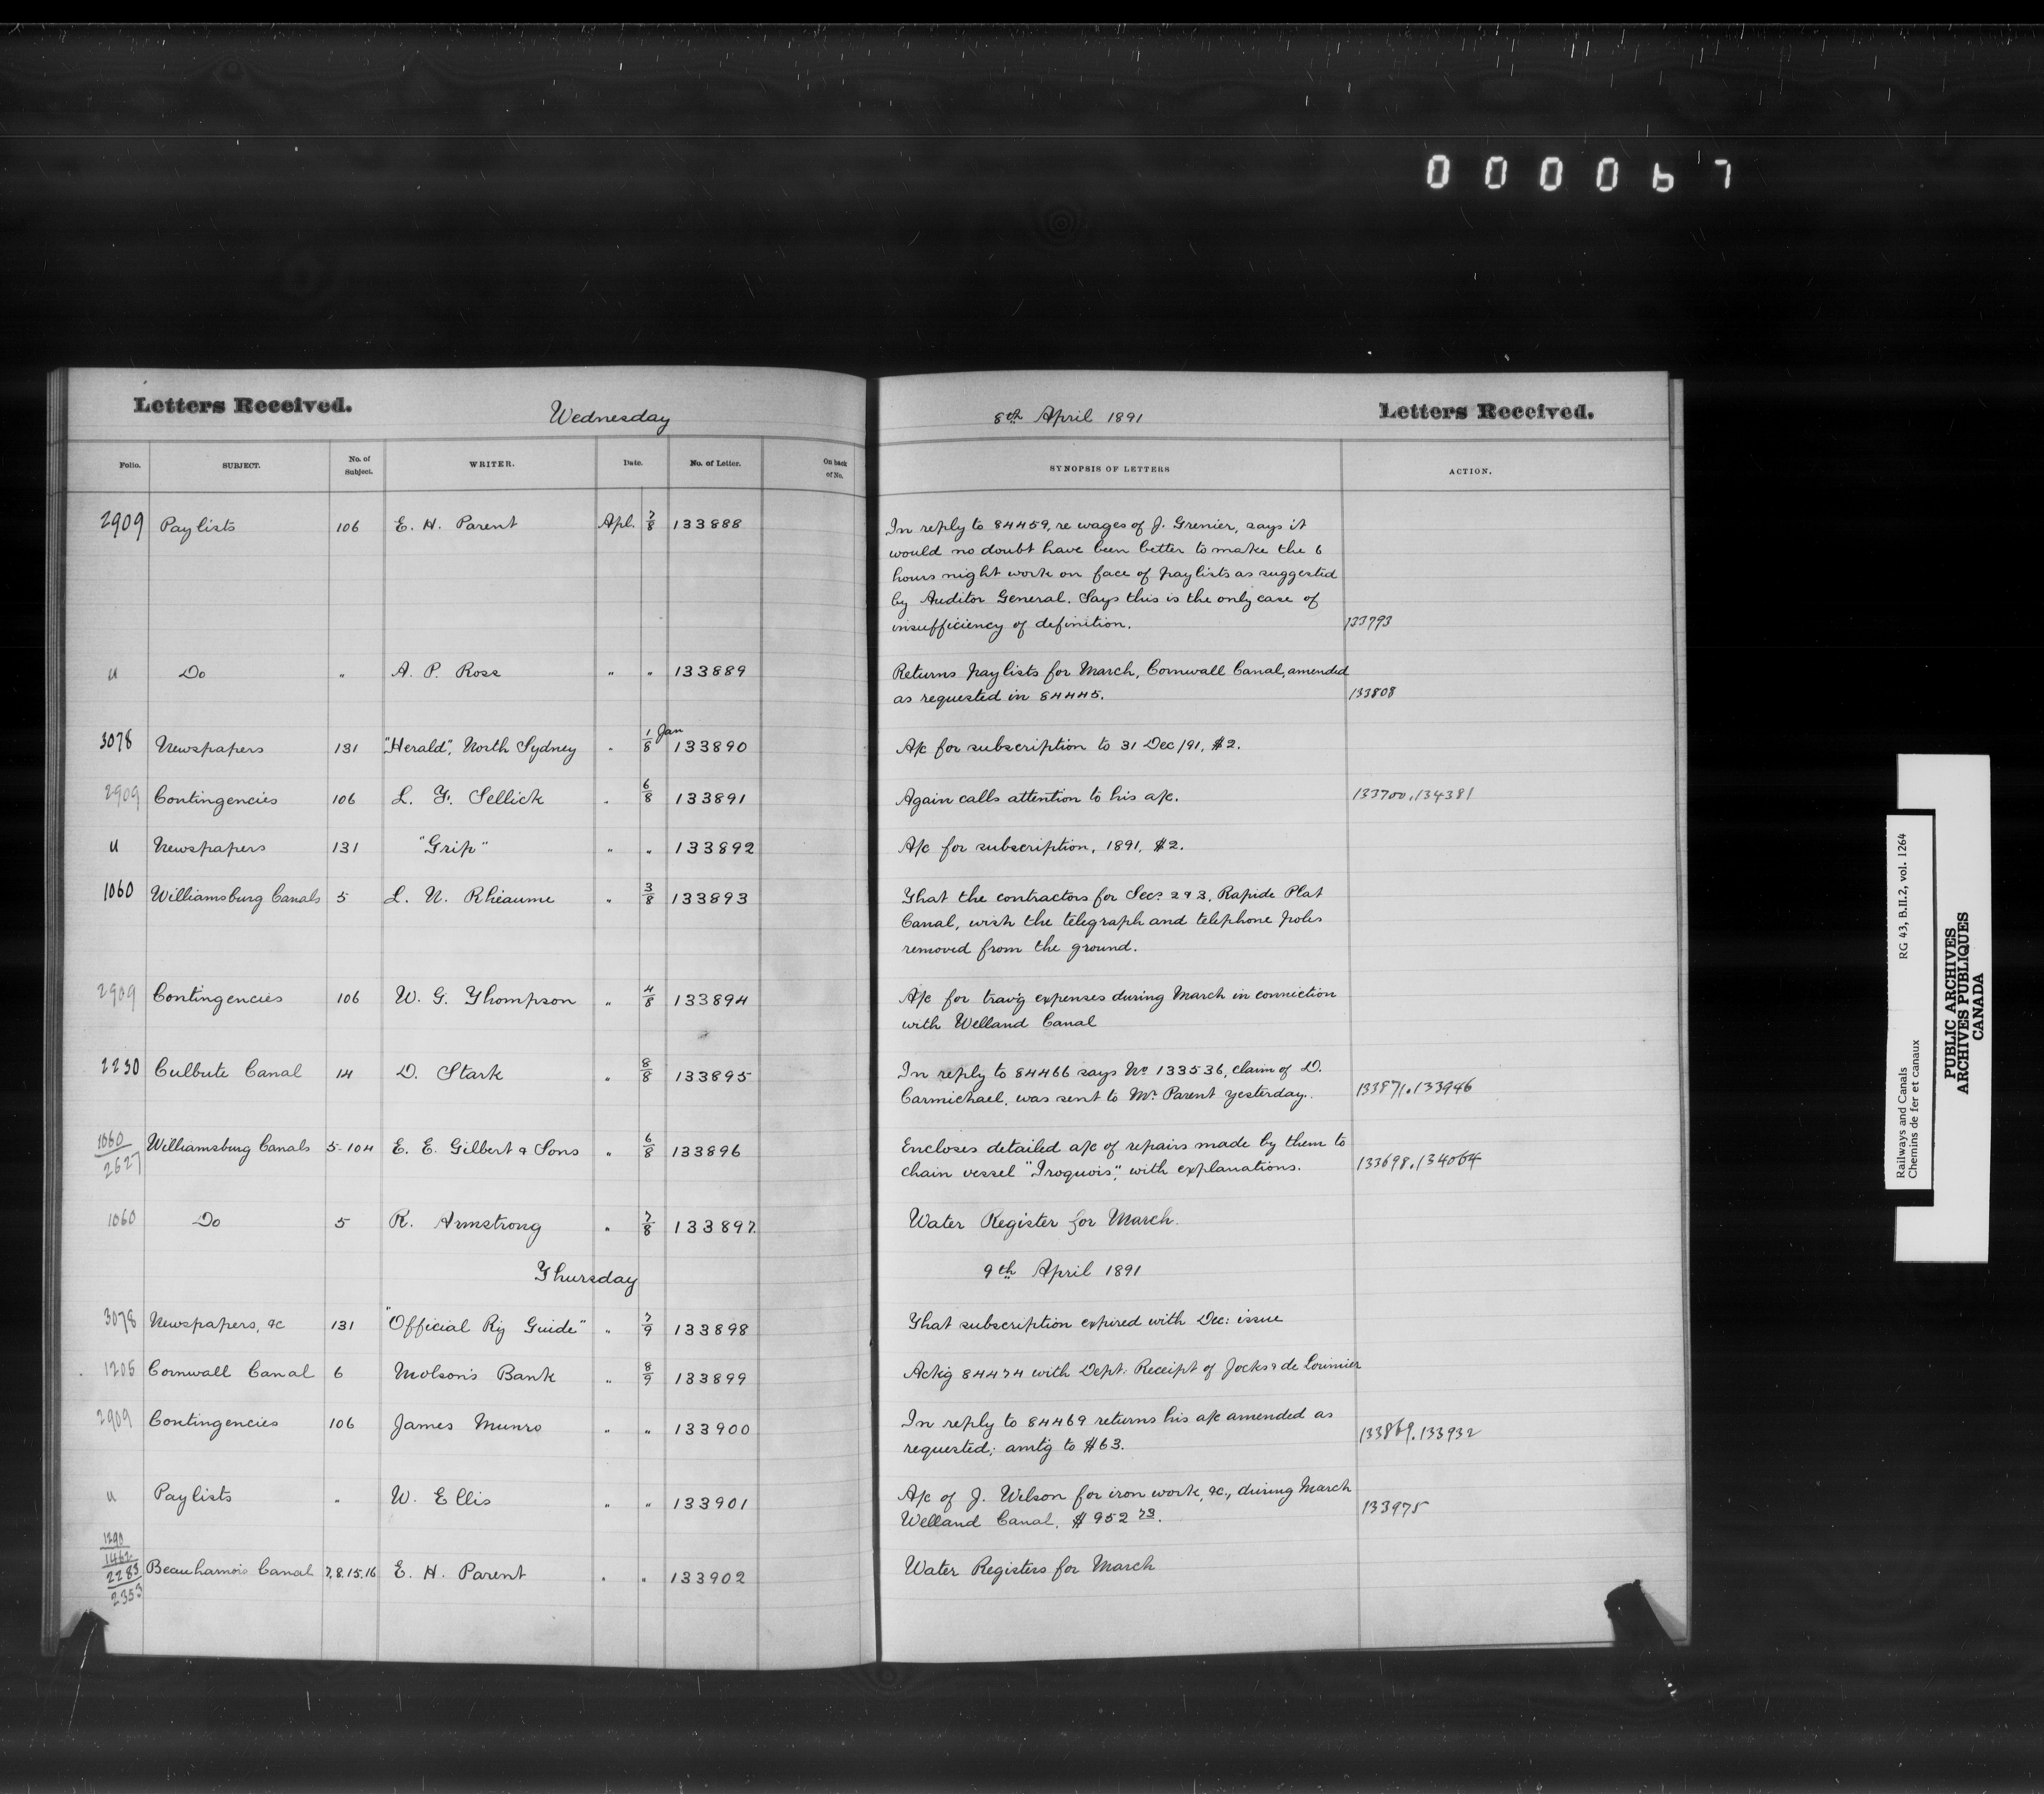 000067
Letters Received.
Wednesday
8th April 1891
Letters Received.
Folio. SUBJECT. No. of Subject. WRITER. Date. No. of Letter. On back of No. SYNOPSIS OF LETTERS ACTION.
2909 Paylists 106 E. H. Parent Apl. 7/8 133888 In reply to 84459, re wages of J. Grenier, says it
would no doubt have been better to make the 6
hours night work on face of paylists as suggested
by Auditor General. Says this is the only case of
insufficiency of definition. 133793
" Do " A. P. Ross " " 133889 Returns paylists for March, Cornwall Canal, amended
as requested in 84445. 133808
3078 Newspapers 131 "Herald", North Sydney " 1/8 Jan 133890 A/c for subscription to 31 Dec/91, $2.
2909 Contingencies 106 L. G. Sellick " 6/8 133891 Again calls attention to his a/c. 133700, 134381
" Newspapers 131 "Grip" " " 133892 A/c for subscription, 1891, $2.
1060 Williamsburg Canals 5 L. N. Rhéaume " 3/8 133893 That the contractors for Secs 2 & 3, Rapide Plat
Canal, wish the telegraph and telephone poles
removed from the ground.
2909 Contingencies 106 W. G. Thompson " 4/8 133894 A/c for trav'g expenses during March in connection
with Welland Canal
2230 Culbute Canal 14 D. Stark " 8/8 133895 In reply to 84466 says No 133536, claim of D.
Carmichael, was sent to Mr Parent yesterday. 133871, 133946
1060/2627 Williamsburg Canals 5-104 E. E. Gilbert & Sons " 6/8 133896 Encloses detailed a/c of repairs made by them to
chain vessel "Iroquois", with explanations. 133698, 134064
1060 Do 5 R. Armstrong " 7/8 133897. Water Register for March.
Thursday 9th April 1891
3078 Newspapers, &c 131 "Official Ry Guide" " 7/9 133898 That subscription expired with Dec: issue
1205 Cornwall Canal 6 Molson's Bank " 8/9 133899 Ack'g 84474 with Dept: Receipt of Jocks & de Lorimier
2909 Contingencies 106 James Munro " " 133900 In reply to 84469 returns his a/c amended as
requested; amt'g to $63. 133869, 133932
" Paylists " W. Ellis " " 133901 A/c of J. Wilson for iron work, &c., during March
Welland Canal, $952 73. 133975
1290
1462
2283
2353
Beauharnois Canal 7.8.15.16 E. H. Parent " " 133902 Water Registers for March
Railways and Canals RG 43, B.II.2, vol. 1264
Chemins de fer et canaux
PUBLIC ARCHIVES
ARCHIVES PUBLIQUES
CANADA